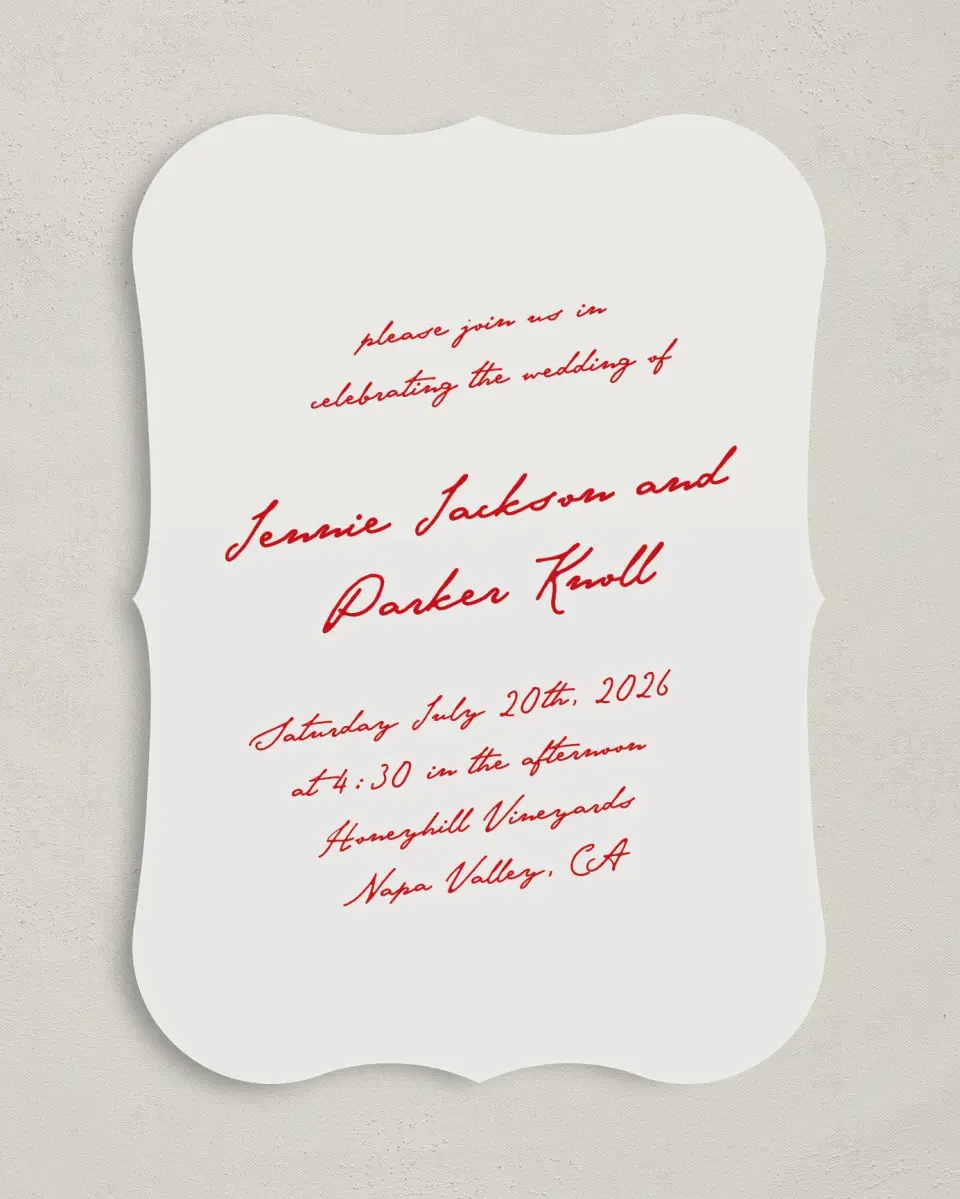 please join us in
celebrating the wedding of
Jennie Jackson and
Parker Knoll
Saturday July 20th, 2026
at 4:30 in the afternoon
Honeyhill Vineyards
Napa Valley, CA